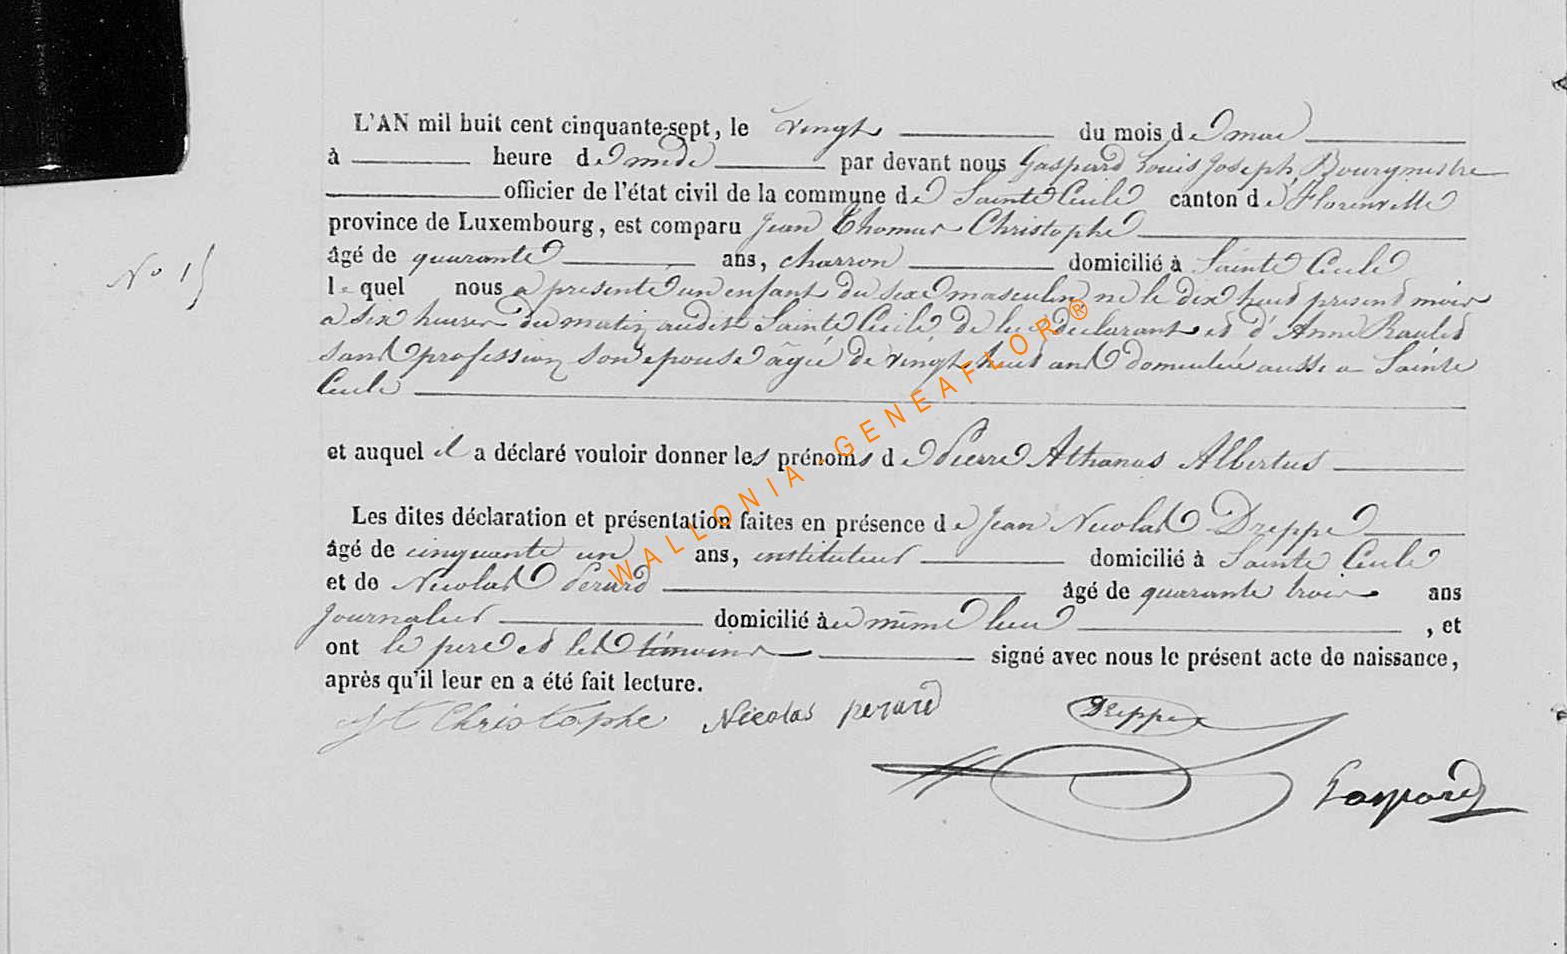 L'AN mil huit cent cinquante-sept, le vingt du mois de mai
à heure de midi par devant nous Gaspard Louis Joseph, Bourgmestre
officier de l'état civil de la commune de Sainte Cécile canton de Florenville
province de Luxembourg, est comparu Jean Thomas Christophe
âgé de quarante ans, charron domicilié à Sainte Cécile
No 15
lequel nous a présenté un enfant du sexe masculin, né le dix huit présent mois
a six heures du matin audit Sainte Cécile de lui déclarant et d'Anne
sans profession son épouse âgée de vingt huit ans domiciliée aussi a Sainte
Cécile
et auquel il a déclaré vouloir donner les prénoms de Pierre Athanas Albertus
Les dites déclaration et présentation faites en présence de Jean Nicolas Dreppe
âgé de cinquante un ans, instituteur domicilié à Sainte Cécile
et de Nicolas Perard âgé de quarante trois ans
journalier domicilié au même lieu , et
ont le père et les témoins signé avec nous le présent acte de naissance,
après qu'il leur en a été fait lecture.
Jt Christophe Nicolas perard Dreppe
Gaspard
WALLONIA - GENEAFLOR ®